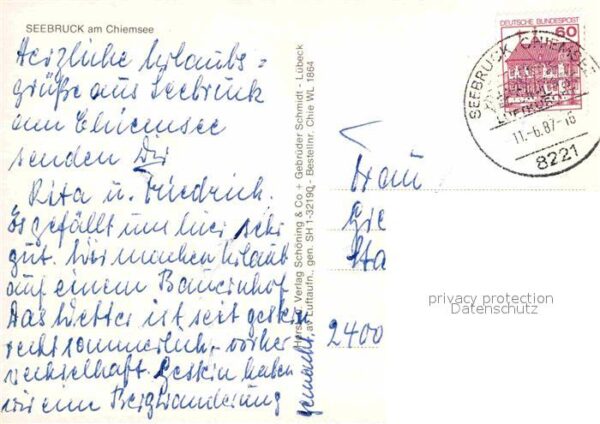 SEEBRUCK am Chiemsee
Herzliche Urlaubs-
grüße aus Seebruck
am Chiemsee
senden Dir
Rita u. Friedrich.
Es gefällt uns hier sehr
gut. Wir machen Urlaub
auf einem Bauernhof
Das Wetter ist seit gestern
recht sommerlich, - vorher
wechselhaft. Gestern haben
wir eine Bergwanderung
gemacht,
Verlag Schöning & Co + Gebrüder Schmidt - Lübeck
Luftaufn., gen. SH 1-3219 - Bestellnr. Chie WL 1864
DEUTSCHE BUNDESPOST
60
SEEBRUCK, CHIEMSEE
LUFTKURORT
11.-6.87-16
8221
Frau
Gie
Sta
2400
privacy protection
Datenschutz